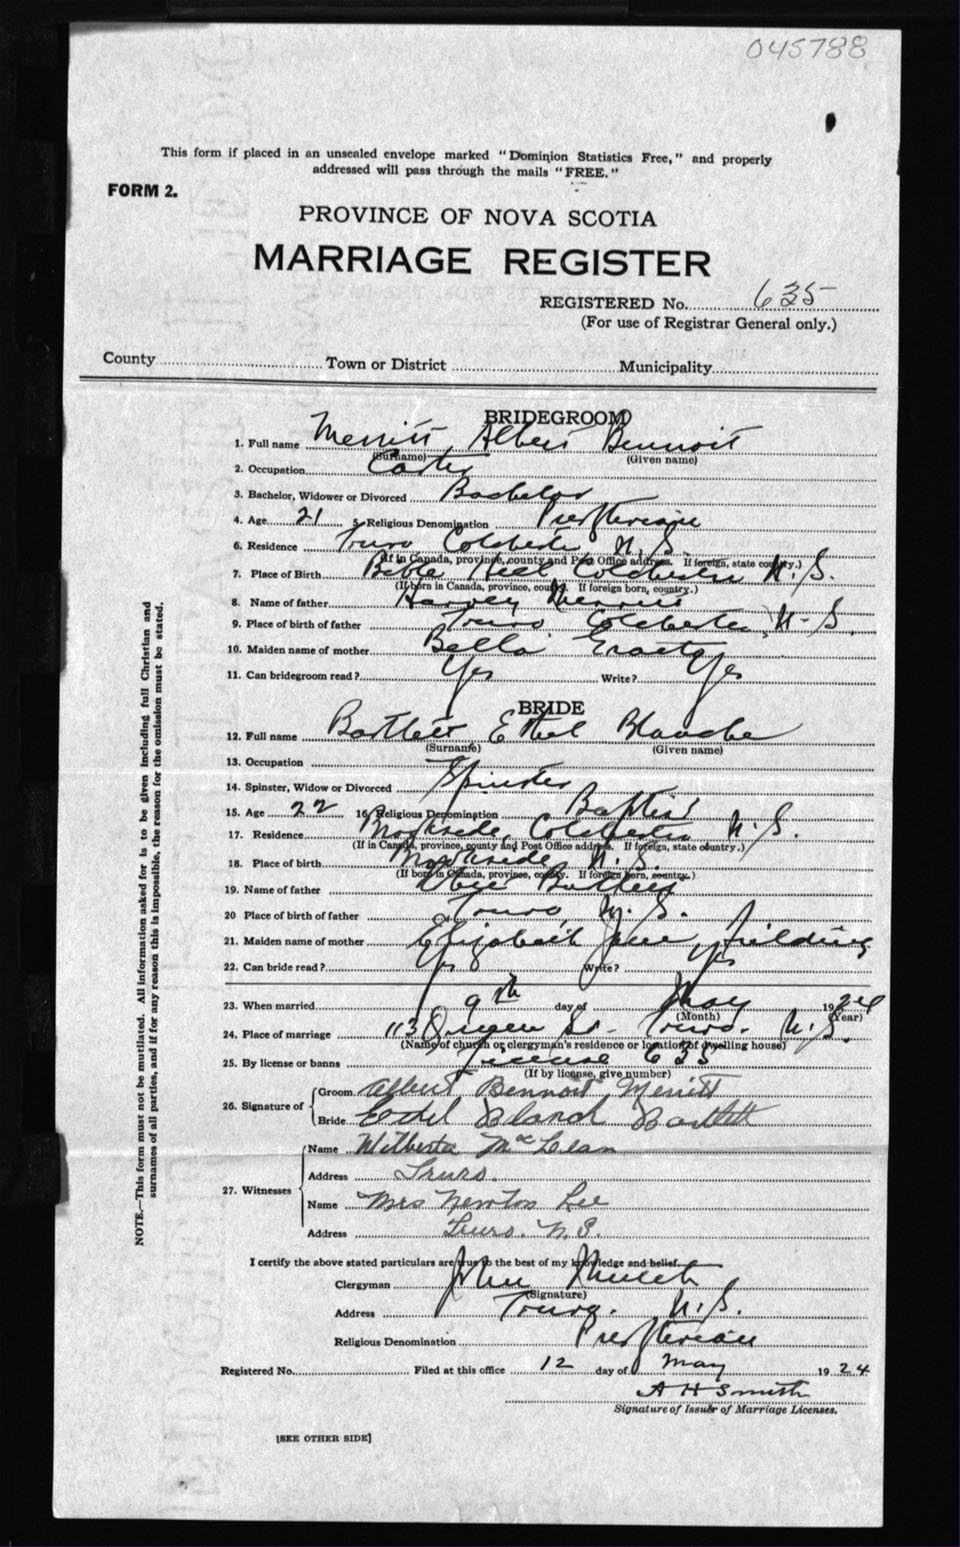 045788
This form if placed in an unsealed envelope marked "Dominion Statistics Free," and properly
addressed will pass through the mails "FREE."
FORM 2.
PROVINCE OF NOVA SCOTIA
MARRIAGE REGISTER
REGISTERED No. 635
(For use of Registrar General only.)
County Town or District Municipality
BRIDEGROOM
1. Full name Merritt Albert Bennoit
(Surname) (Given name)
2. Occupation
3. Bachelor, Widower or Divorced Bachelor
4. Age 21 5 Religious Denomination Presbyterian
6. Residence Truro Colchester N.S.
(If in Canada, province, county and Post Office address. If foreign, state country.)
7. Place of Birth Bible Hill Colchester N.S.
(If born in Canada, province, county. If foreign born, country.)
8. Name of father Harvey Merritt
9. Place of birth of father Truro Colchester, N.S.
10. Maiden name of mother Bella
11. Can bridegroom read? Yes Write? Yes
BRIDE
12. Full name Bartlett Ethel Blanche
(Surname) (Given name)
13. Occupation
14. Spinster, Widow or Divorced Spinster
15. Age 22 16 Religious Denomination Baptist
17. Residence Brookside, Colchester N.S.
(If in Canada, province, county and Post Office address. If foreign, state country.)
18. Place of birth Brookside, N.S.
(If born in Canada, province, county. If foreign born, country.)
19. Name of father Bartlett
20 Place of birth of father Truro, N.S.
21. Maiden name of mother Elizabeth Jane Fielding
22. Can bride read? Yes Write? Yes
23. When married 9th day of May 1924
(Month) (Year)
24. Place of marriage 113 Queen St. Truro. N.S.
(Name of church or clergyman's residence or location of dwelling house)
25. By license or banns License 635
(If by license, give number)
26. Signature of
Groom Albert Bennoit Merritt
Bride Ethel Blanch Bartlett
27. Witnesses
Name Wilberta McLean
Address Truro.
Name Mrs Newton Lee
Address Truro. N.S.
I certify the above stated particulars are true to the best of my knowledge and belief.
Clergyman John
(Signature)
Address Truro. N.S.
Religious Denomination Presbyterian
Registered No. Filed at this office 12 day of May 1924
A H Smith
Signature of Issuer of Marriage Licenses.
[SEE OTHER SIDE]
NOTE.—This form must not be mutilated. All information asked for is to be given including full Christian and
surnames of all parties, and if for any reason this is impossible, the reason for the omission must be stated.